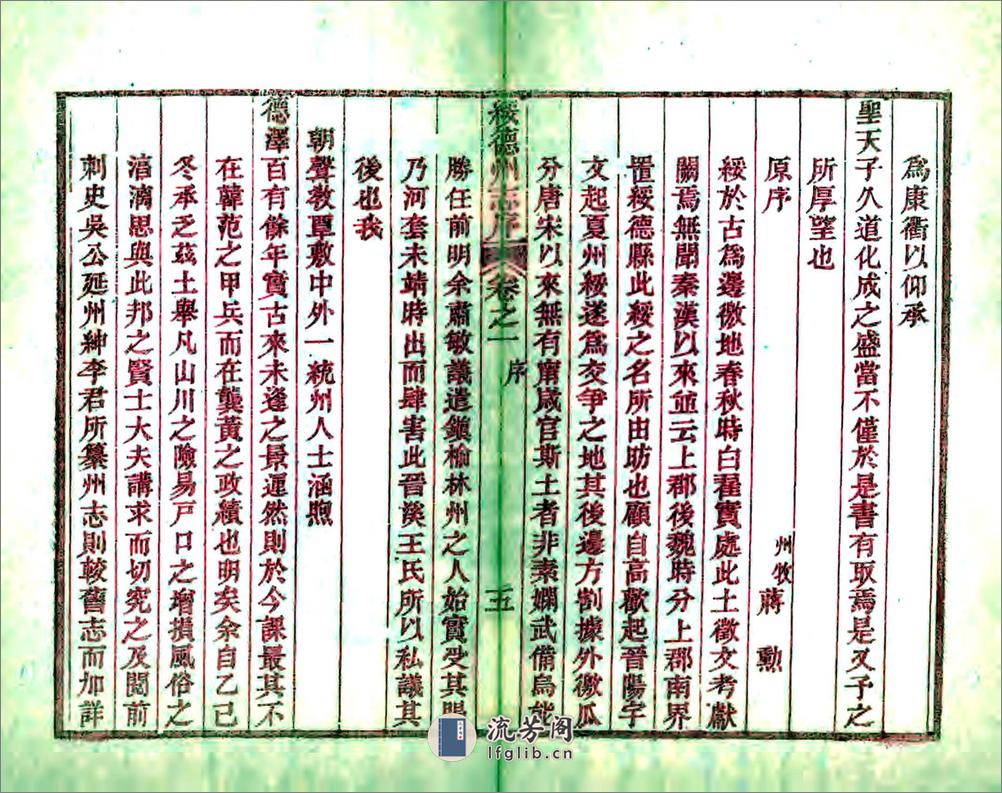 爲康衢以仰承
聖天子久道化成之盛當不僅於是書有取焉是又予之
所厚望也
原序
州牧蔣勲
綏於古爲邊徼地春秋時白翟實處此土徵文考獻
闕焉無聞秦漢以來並云上郡後魏時分上郡南界
置綏德縣此綏之名所由昉也顧自高歡起晉陽宇
文起夏州綏遂爲交爭之地其後邊方割據外徼瓜
分唐宋以來無有甯歲官斯土者非素嫻武備烏能
綏德州志序 卷之一 序 五
勝任前明余肅敏議遣鎭榆林州之人始實受其賜
乃河套未靖時出而肆害此晉溪王氏所以私議其
後也我
朝聲教覃敷中外一統州人士涵煦
德澤百有餘年實古來未逢之景運然則於今課最其不
在韓范之甲兵而在龔黃之政績也明矣余自乙己
冬承乏茲土舉凡山川之險易戸口之增損風俗之
淳漓思與此邦之賢士大夫講求而切究之及閱前
刺史吳公延州紳李君所纂州志則較舊志而加詳
流芳阁
lfglib.cn